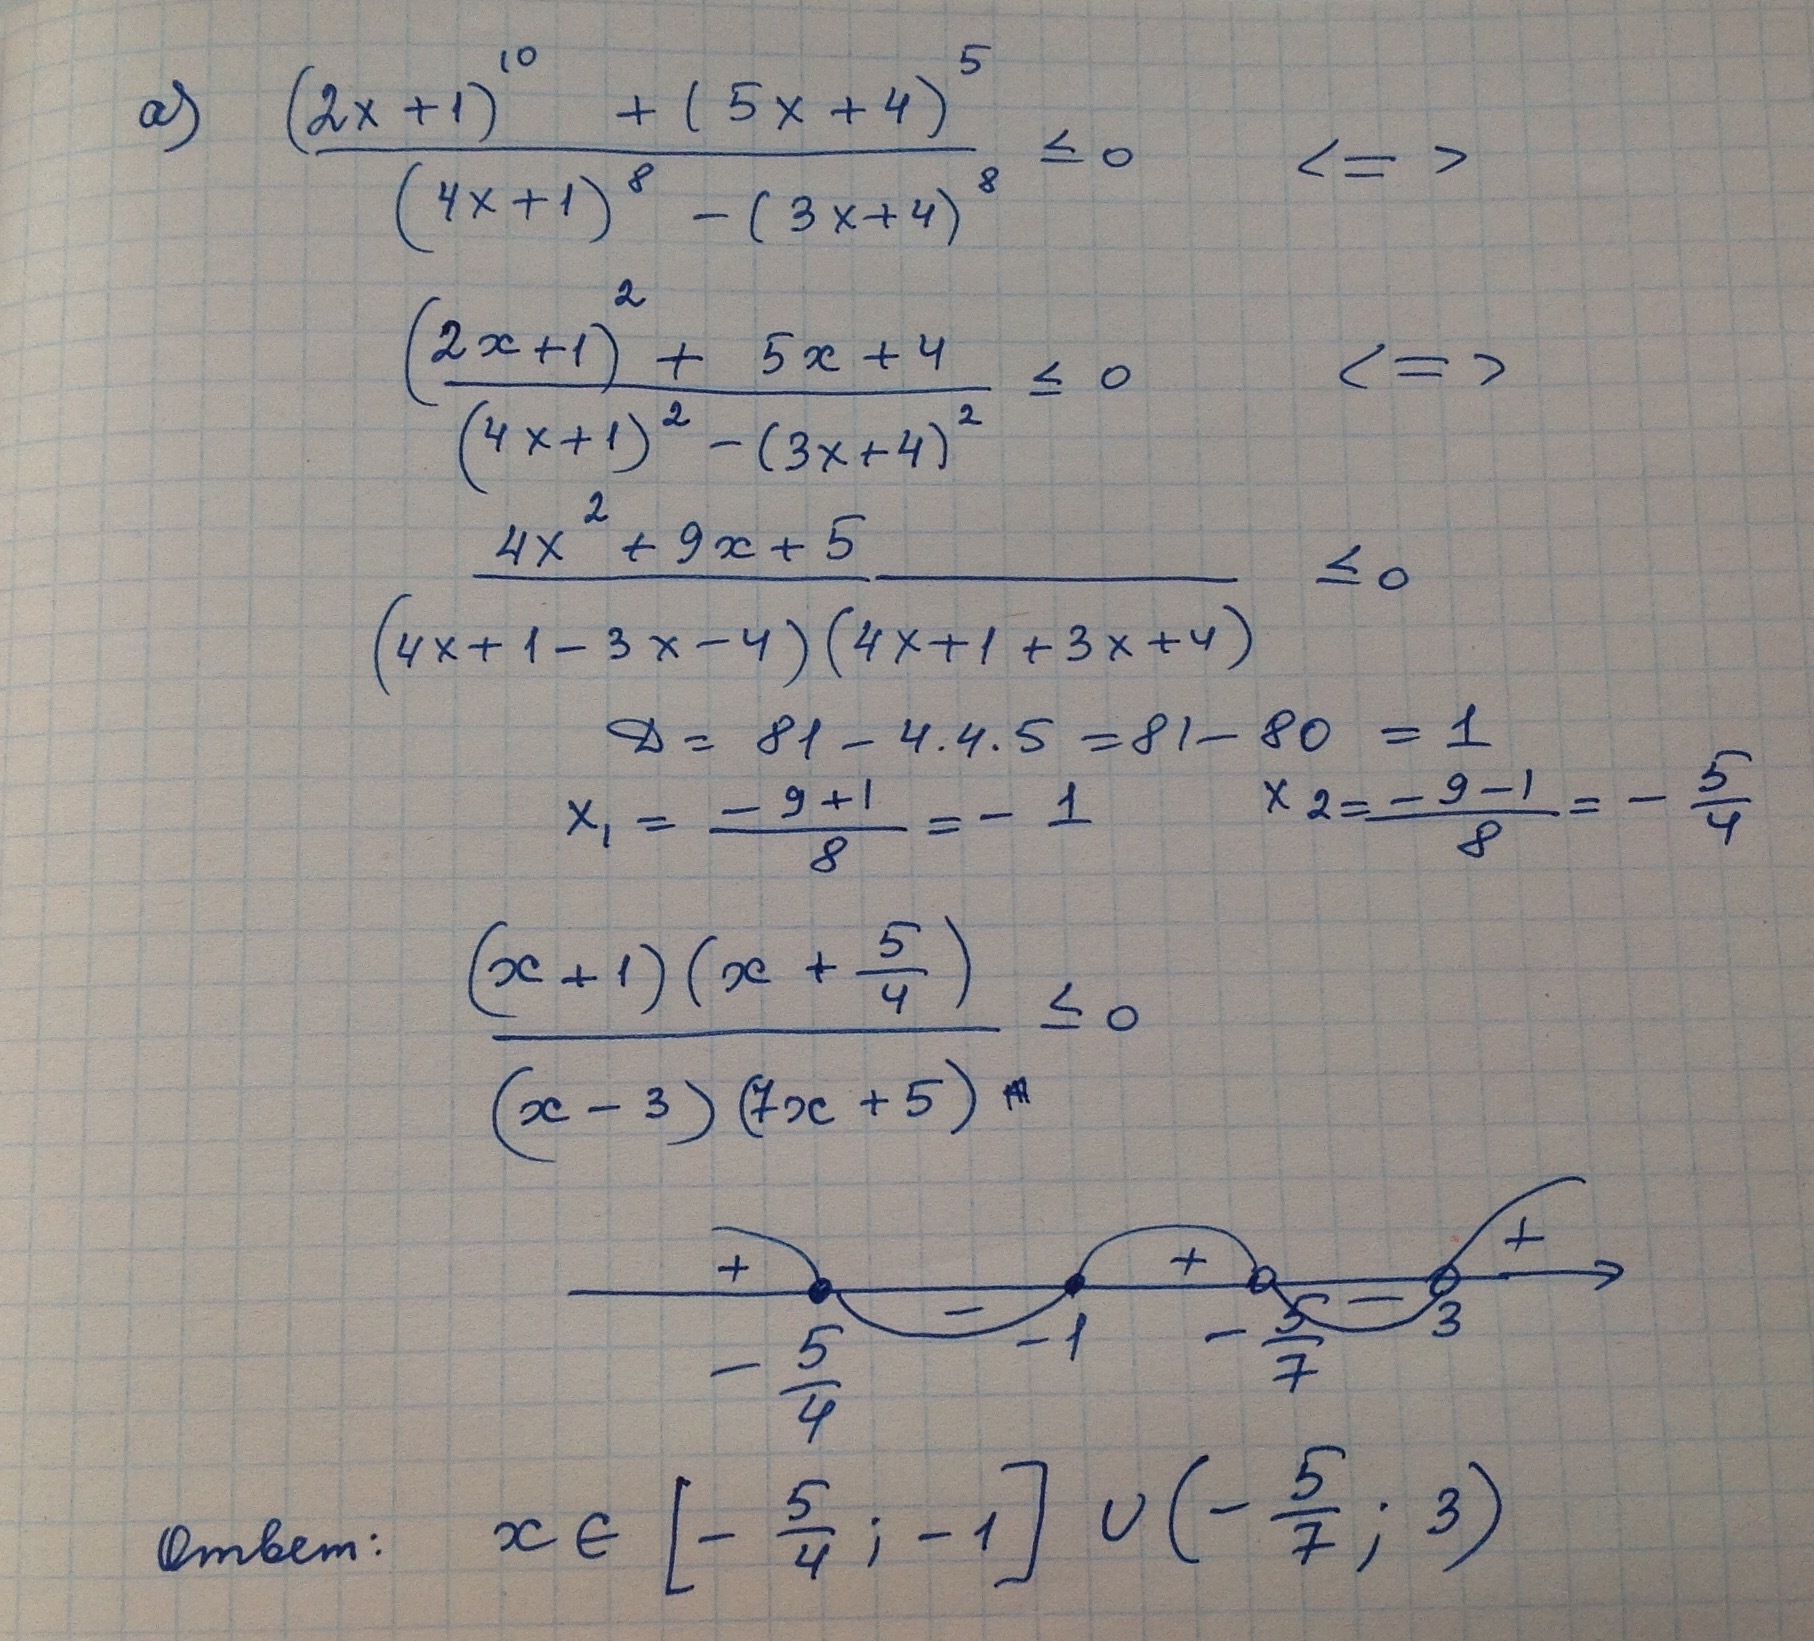 а) ((2x+1)^10 + (5x+4)^5) / ((4x+1)^8 - (3x+4)^8) ≤ 0 <=>
((2x+1)^2 + 5x+4) / ((4x+1)^2 - (3x+4)^2) ≤ 0 <=>
(4x^2 + 9x + 5) / ((4x+1-3x-4)(4x+1+3x+4)) ≤ 0
D = 81 - 4.4.5 = 81 - 80 = 1
x₁ = (-9+1)/8 = -1 x₂ = (-9-1)/8 = -5/4
((x+1)(x+5/4)) / ((x-3)(7x+5)) ≤ 0
+ - + - +
-5/4 -1 -5/7 3
Ответ: x ∈ [-5/4; -1] ∪ (-5/7; 3)